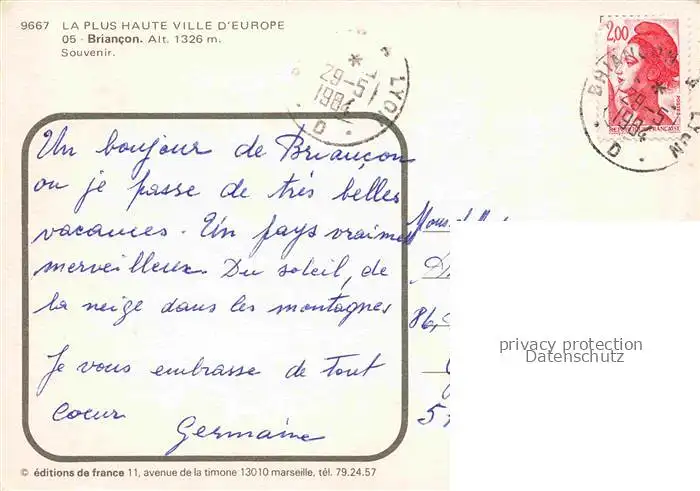 9667 LA PLUS HAUTE VILLE D'EUROPE
05 - Briançon. Alt. 1326 m.
Souvenir.
* LYON
29-5
1984
D
2,00
BRIANÇON * LYON
29-5
1984
D
Un bonjour de Briançon
ou je passe de très belles
vacances. Un pays vraiment
merveilleux. Du soleil, de
la neige dans les montagnes
Je vous embrasse de tout
coeur
Germaine
86,
privacy protection
Datenschutz
© éditions de france 11, avenue de la timone 13010 marseille, tél. 79.24.57